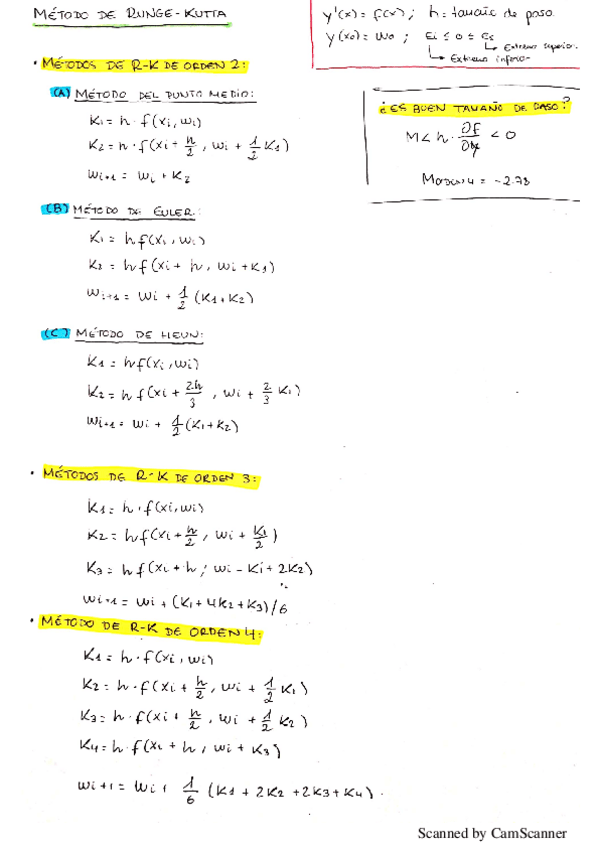 MÉTODO DE RUNGE-KUTTA
y'(x) = f(x) ; h = tamaño de paso.
y(x0) = w0 ; Ei ≤ 0 ≤ Es
Extremo superior.
Extremo inferior.
• MÉTODOS DE R-K DE ORDEN 2:
(A) MÉTODO DEL PUNTO MEDIO:
K1 = h · f(xi, wi)
K2 = h · f(xi + h/2, wi + 1/2 K1)
wi+1 = wi + K2
¿ES BUEN TAMAÑO DE PASO?
M < h · ∂f/∂y < 0
Morden 4 = -2.78
(B) MÉTODO DE EULER:
K1 = h f(xi, wi)
K2 = h f(xi + h, wi + K1)
wi+1 = wi + 1/2 (K1 + K2)
(C) MÉTODO DE HEUN:
K1 = h f(xi, wi)
K2 = h f(xi + 2h/3, wi + 2/3 K1)
wi+1 = wi + 1/2 (K1 + K2)
• MÉTODOS DE R-K DE ORDEN 3:
K1 = h · f(xi, wi)
K2 = h f(xi + h/2, wi + K1/2)
K3 = h f(xi + h; wi - K1 + 2K2)
wi+1 = wi + (K1 + 4K2 + K3)/6
• MÉTODO DE R-K DE ORDEN 4:
K1 = h · f(xi, wi)
K2 = h · f(xi + h/2, wi + 1/2 K1)
K3 = h · f(xi + h/2, wi + 1/2 K2)
K4 = h · f(xi + h, wi + K3)
wi+1 = wi + 1/6 (K1 + 2K2 + 2K3 + K4).
Scanned by CamScanner